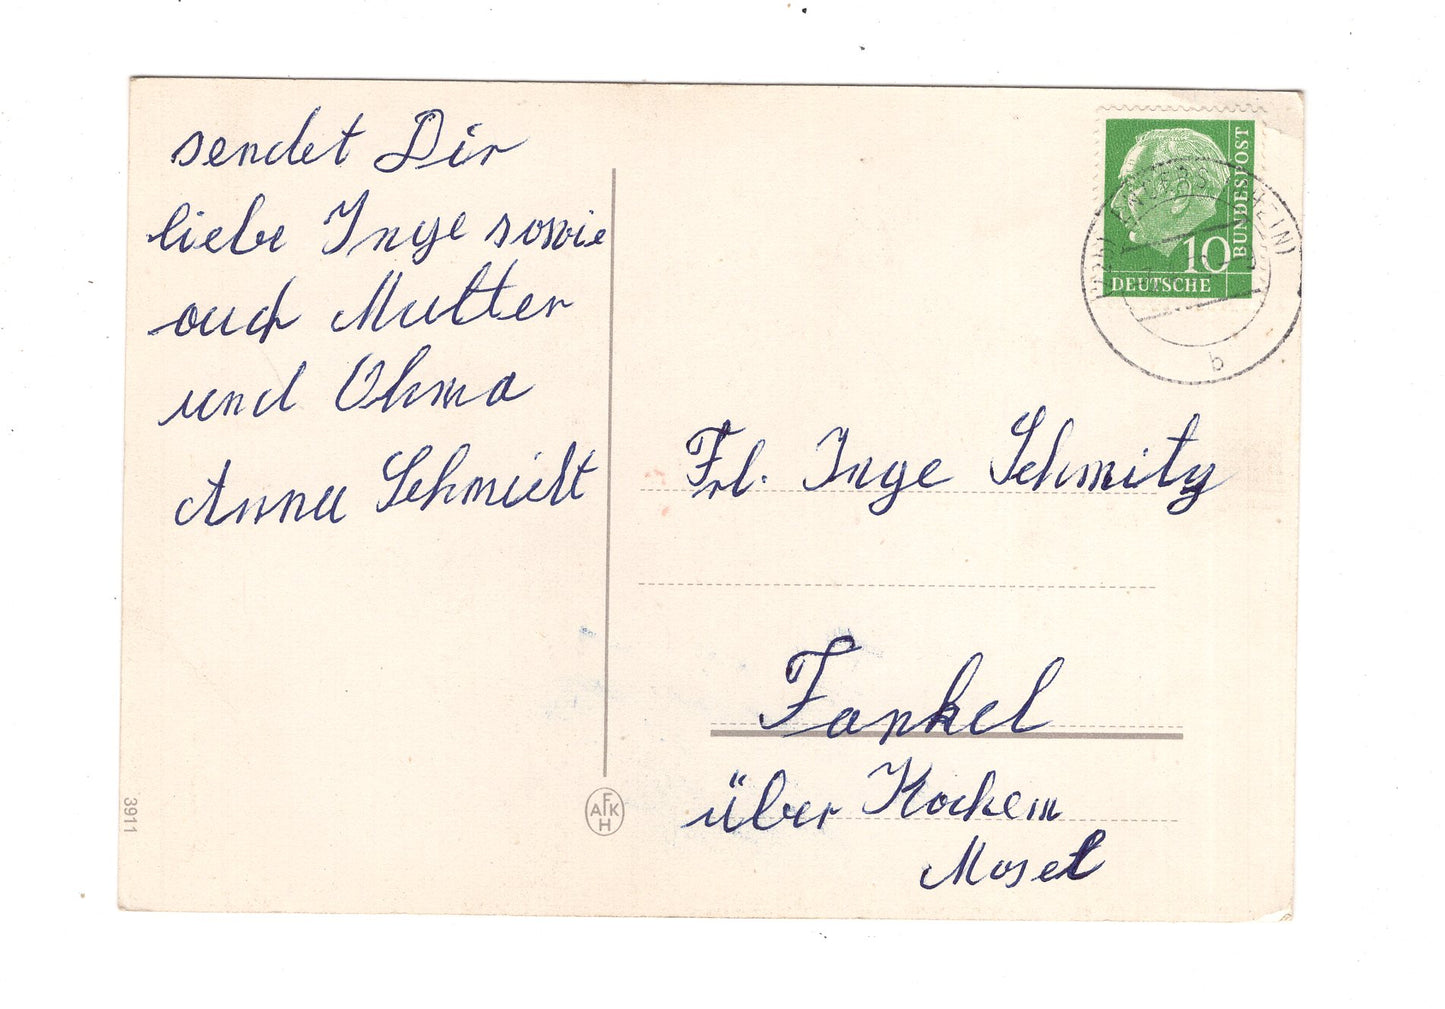 sendet Dir
liebe Inge sowie
auch Mutter
und Ohma
Anna Schmidt
3911
AFKH
10
DEUTSCHE
BUNDESPOST
b
Frl. Inge Schmitz
Fankel
über Kochem
Mosel